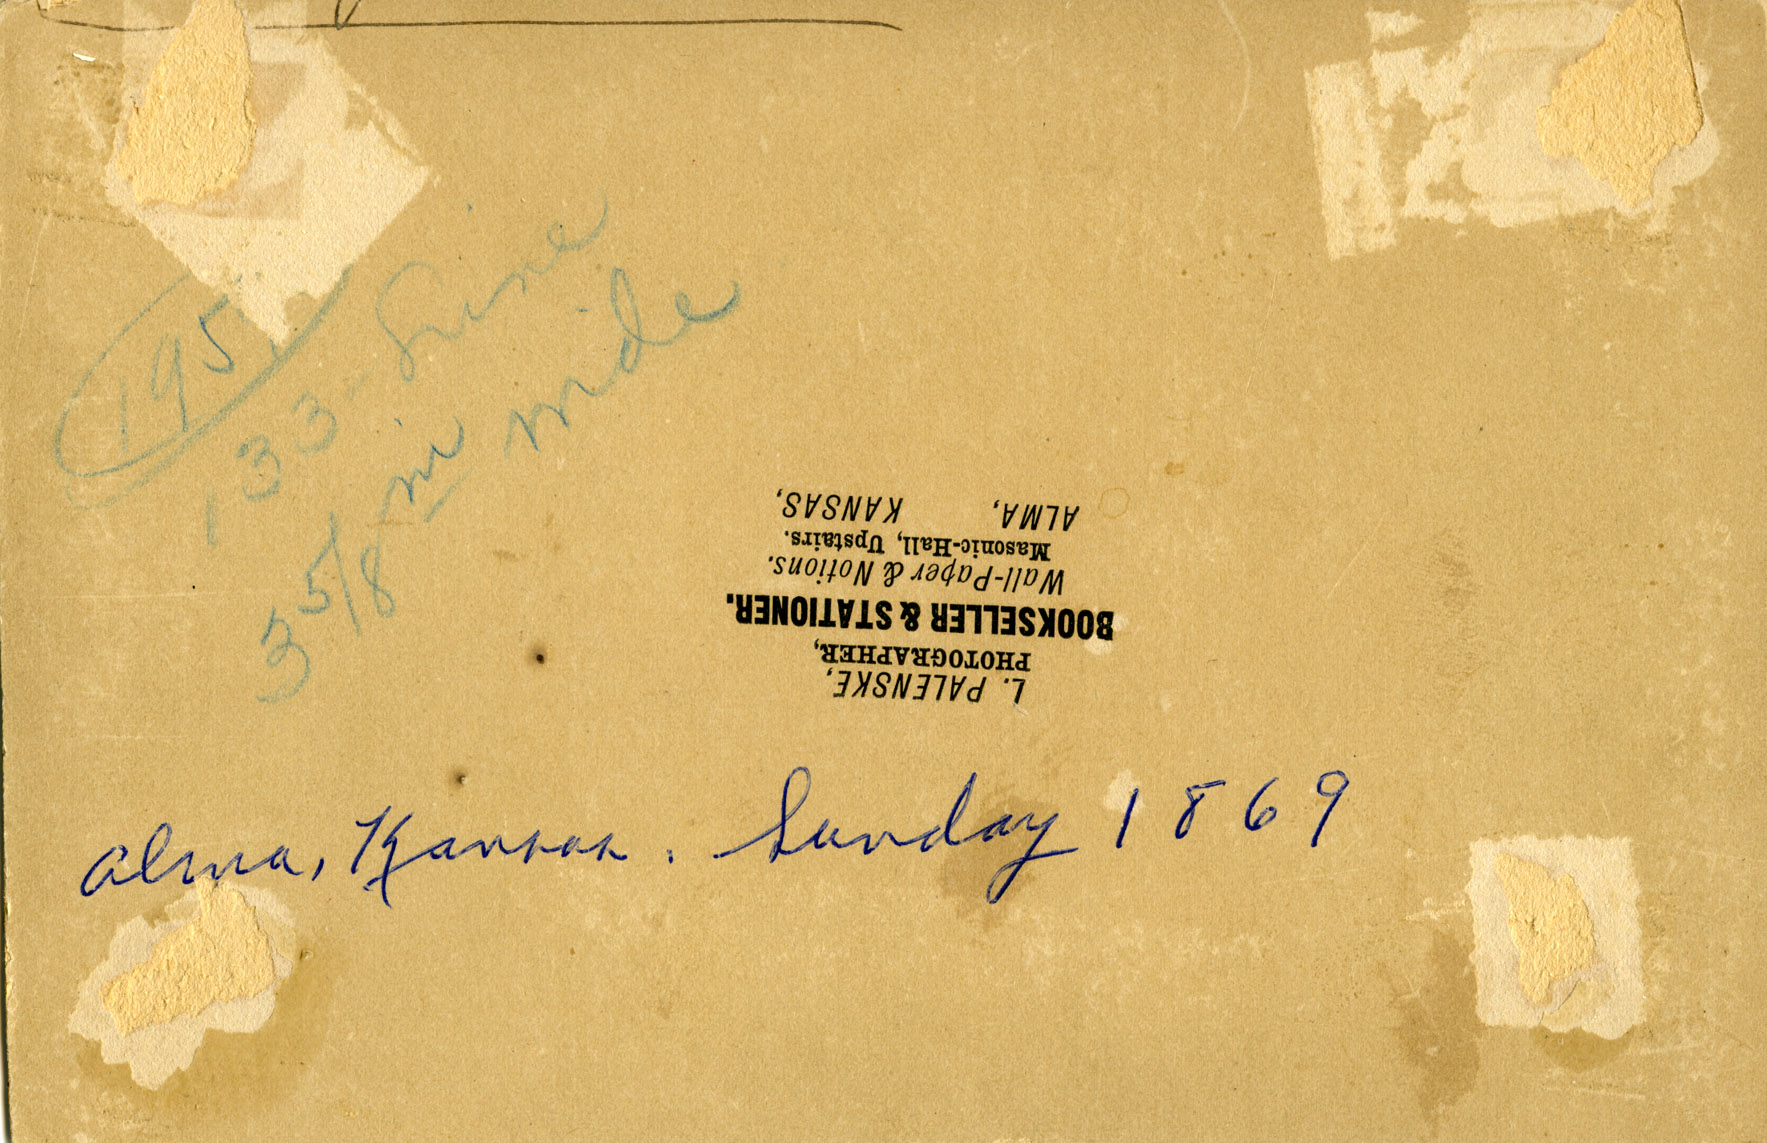 195
133-line
3 5/8 in wide
L. PALENSKE,
PHOTOGRAPHER,
BOOKSELLER & STATIONER.
Wall-Paper & Notions.
Masonic-Hall, Upstairs.
ALMA, KANSAS,
Alma, Kansas. Sunday 1869